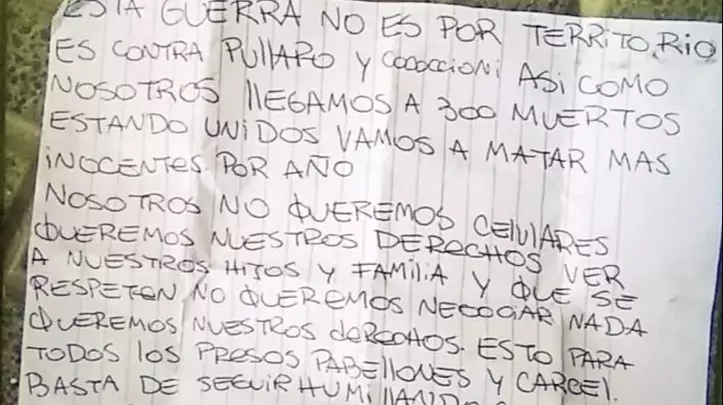 ESTA GUERRA NO ES POR TERRITORIO
ES CONTRA PUllARO y COCOCCIONi ASi COMO
NOSOTROS llEGAMOS A 300 MUERTOS
ESTANDO UNiDOS VAMOS A MATAR MAS
iNOCENTES POR AÑO
NOSOTROS NO QUEREMOS CELUlARES
QUEREMOS NUESTROS DERECHOS VER
A NUESTROS HiJOS y FAMiliA y QUE SE
RESPETEN NO QUEREMOS NEGOCiAR NADA
QUEREMOS NUESTROS DERECHOS. ESTO PARA
TODOS lOS PRESOS PABEllONES y CARCEl.
BASTA DE SEGUiR HUMillANDO